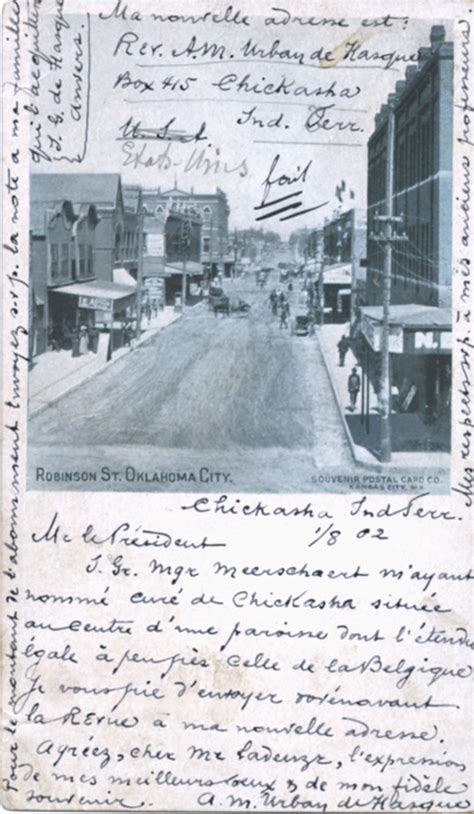 Ma nouvelle adresse est:
Rev. A.M. Urban de Hasque
Box 415 Chickasha
Ind. Terr.
U.S.A
Etats-Unis
fait
ROBINSON ST. OKLAHOMA CITY.
SOUVENIR POSTAL CARD CO.
KANSAS CITY, MO.
Chickasha Ind Terr.
1/8 02
Mr le Président
S. Gr. Mgr Meerschaert m'ayant
nommé curé de Chickasha située
au centre d'une paroisse dont l'étendue
égale à peu près celle de la Belgique
Je vous prie d'envoyer dorénavant
la Revue à ma nouvelle adresse.
Agréez, cher Mr Ladeuze, l'expression
de mes meilleurs vœux & de mon fidèle
souvenir. A. M. Urban de Hasque
Pour le montant de l'abonnement envoyez s.v.p. la note à ma famille
qui l'acquittera
J. G. de Hasque
Anvers.
Mes respects s.v.p. à mes anciens professeurs